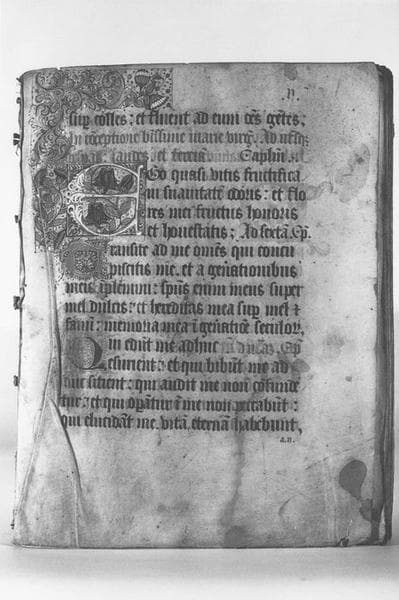 n.
sup colles: et fluent ad eum oēs gētes:
In cōceptione btissime marie virg̃. Ad
laudes et terciā Caplm̄
EGO quasi vitis fructifica
ui suauitatē odoris: et flo
res mei fructus honoris
et honestatis: Ad sextā. Cp.
Transite ad me om̄es qui concu
piscitis me. et a gn̄ationibus
meis īplemini: spūs enim meus super
mel dulcis: et hereditas mea sup mel ⁊
fauū: memoria mea ī gn̄atiōe seculoꝝ,
Qui edūt me adhuc Cp
esuriēt: et qui bibūt me ad
huc sitient: qui audit me non cōfunde
tur: et qui opāntur ī me non peccabūt:
qui elucidāt me vitā eternā habebunt,
a.ii.